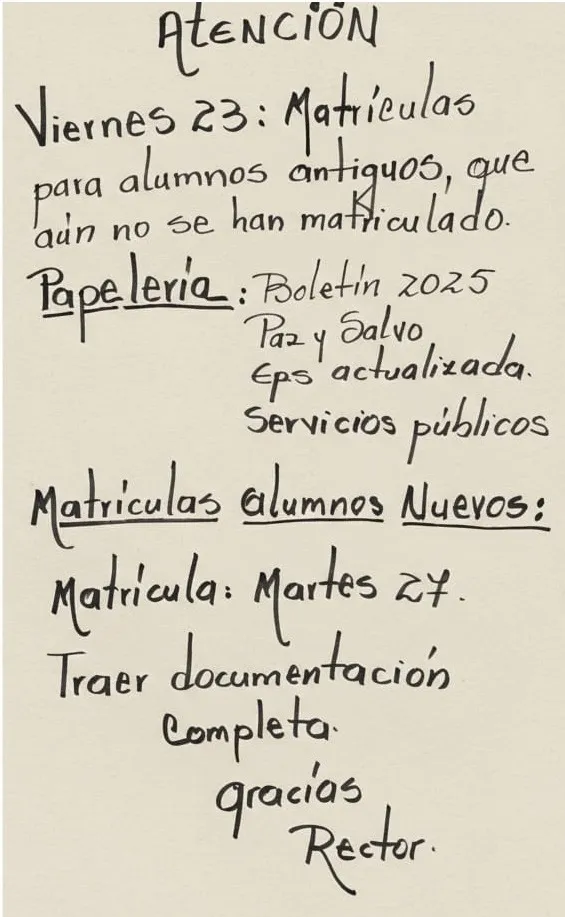 AtENCIÓN
Viernes 23: Matrículas
para alumnos antiguos, que
aún no se han matriculado.
Papelería: Boletín 2025
Paz y Salvo
Eps actualizada.
Servicios públicos
Matriculas alumnos Nuevos:
Matrícula: Martes 27.
Traer documentación
Completa.
gracias
Rector.